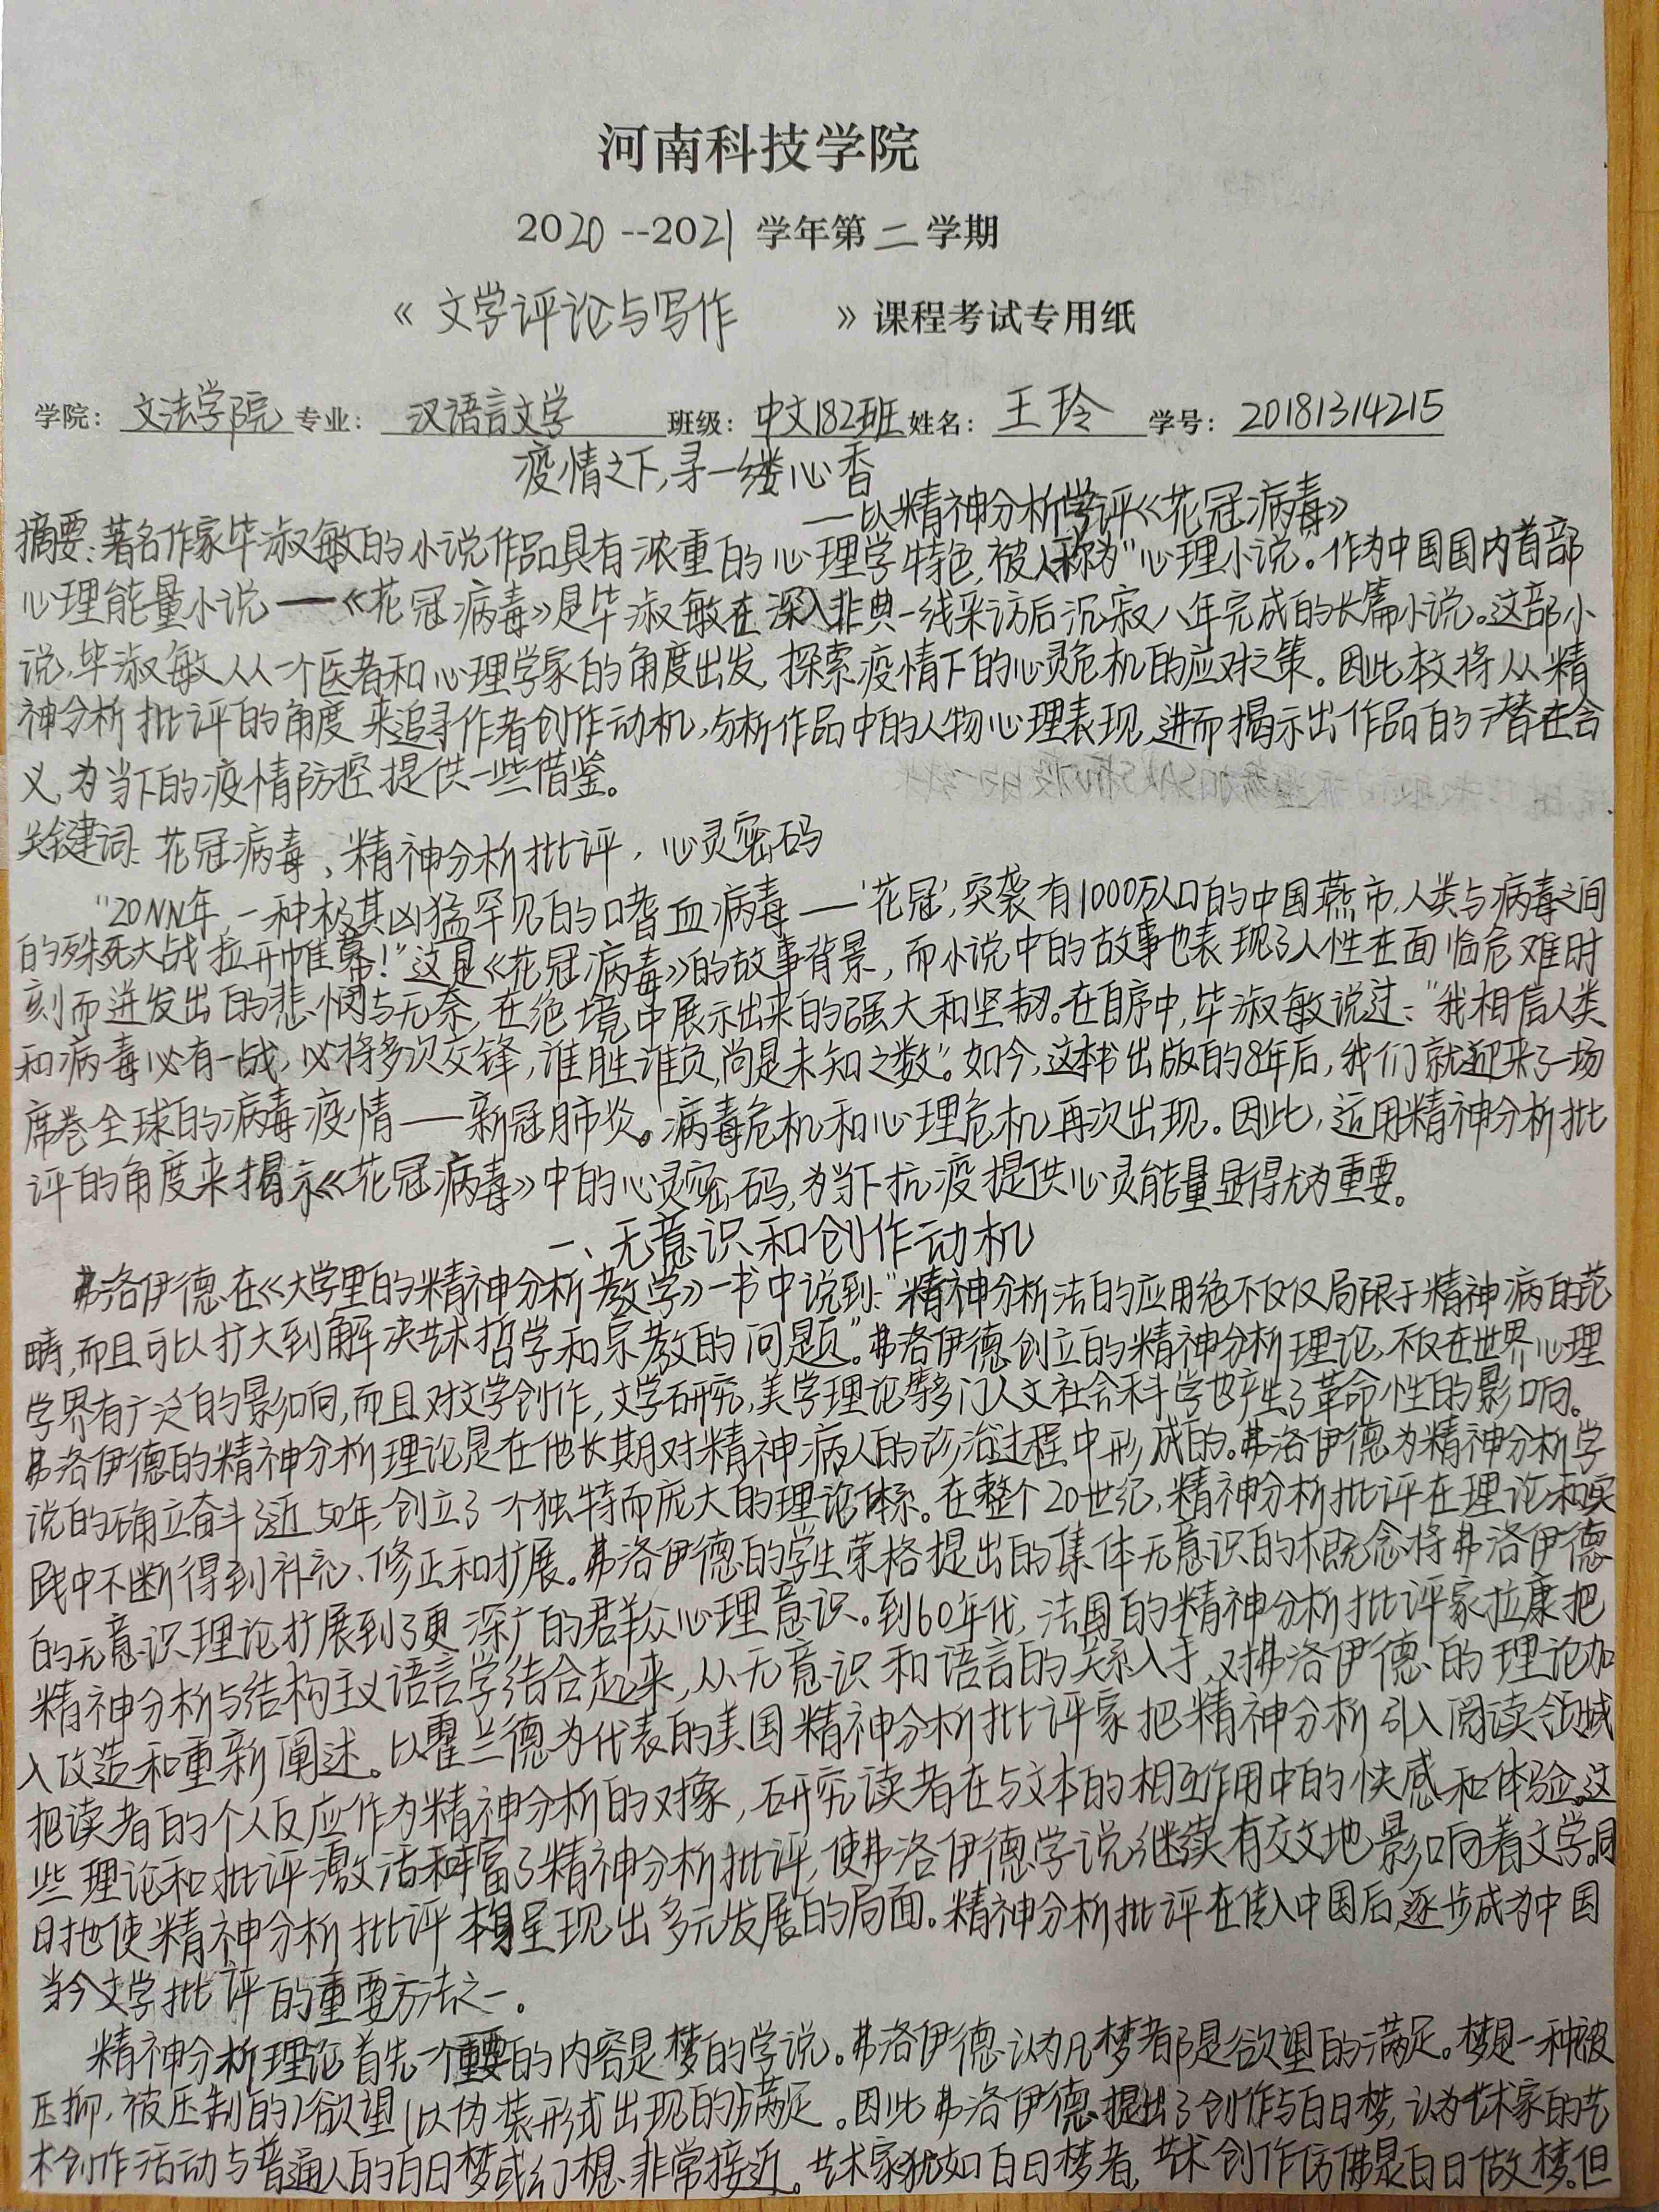 河南科技学院
2020--2021学年第二学期
《文学评论与写作》课程考试专用纸
学院：文法学院 专业：汉语言文学 班级：中文182班 姓名：王玲 学号：20181314215
疫情之下,寻一缕心香
——以精神分析学评《花冠病毒》
摘要:著名作家毕淑敏的小说作品具有浓重的心理学特色,被人称为"心理小说"。作为中国国内首部
心理能量小说——《花冠病毒》是毕淑敏在深入非典一线采访后沉寂八年完成的长篇小说。这部小
说,毕淑敏从一个医者和心理学家的角度出发,探索疫情下的心灵危机的应对之策。因此本文将从精
神分析批评的角度来追寻作者创作动机,分析作品中的人物心理表现,进而揭示出作品的潜在含
义,为当下的疫情防控提供一些借鉴。
关键词:花冠病毒,精神分析批评,心灵密码
"20NN年,一种极其凶猛罕见的嗜血病毒——'花冠',突袭有1000万人口的中国燕市,人类与病毒之间
的殊死大战拉开帷幕!"这是《花冠病毒》的故事背景,而小说中的故事也表现了人性在面临危难时
刻而迸发出的悲悯与无奈,在绝境中展示出来的强大和坚韧。在自序中,毕淑敏说过:"我相信人类
和病毒必有一战,必将多次交锋,谁胜谁负,尚是未知之数"。如今,这本书出版的8年后,我们就迎来了一场
席卷全球的病毒疫情——新冠肺炎。病毒危机和心理危机再次出现。因此,运用精神分析批
评的角度来揭示《花冠病毒》中的心灵密码,为当下抗疫提供心灵能量显得尤为重要。
一、无意识和创作动机
弗洛伊德在《大学里的精神分析教学》一书中说到:"精神分析法的应用绝不仅仅局限于精神病的范
畴,而且可以扩大到解决艺术哲学和宗教的问题"。弗洛伊德创立的精神分析理论,不仅在世界心理
学界有广泛的影响,而且对文学创作,文学研究,美学理论等多门人文社会科学也产生了革命性的影响。
弗洛伊德的精神分析理论是在他长期对精神病人的诊治过程中形成的。弗洛伊德为精神分析学
说的确立奋斗了近50年,创立了一个独特而庞大的理论体系。在整个20世纪,精神分析批评在理论和实
践中不断得到补充、修正和扩展。弗洛伊德的学生荣格提出的集体无意识的概念将弗洛伊德
的无意识理论扩展到了更深广的群众心理意识。到60年代,法国的精神分析批评家拉康把
精神分析与结构主义语言学结合起来,从无意识和语言的关系入手,对弗洛伊德的理论加
入改造和重新阐述。以霍兰德为代表的美国精神分析批评家把精神分析引入阅读领域
把读者的个人反应作为精神分析的对像,研究读者在与文本的相互作用中的快感和体验。这
些理论和批评激活和丰富了精神分析批评,使弗洛伊德学说继续有效地影响着文学。同
时也使精神分析批评本身呈现出多元发展的局面。精神分析批评在传入中国后,逐步成为中国
当今文学批评的重要方法之一。
精神分析理论首先一个重要的内容是梦的学说。弗洛伊德认为凡梦都是欲望的满足。梦是一种(被
压抑,被压制的)欲望(以伪装形式出现的)满足。因此弗洛伊德提出了创作与白日梦,认为艺术家的艺
术创作活动与普通人的白日梦或幻想非常接近。艺术家犹如白日梦者,艺术创作仿佛是白日做梦。但